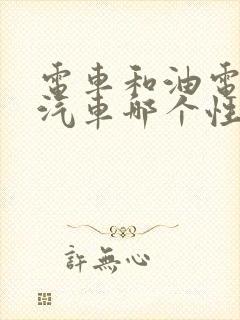 電車和油電
汽車哪个性
許無心